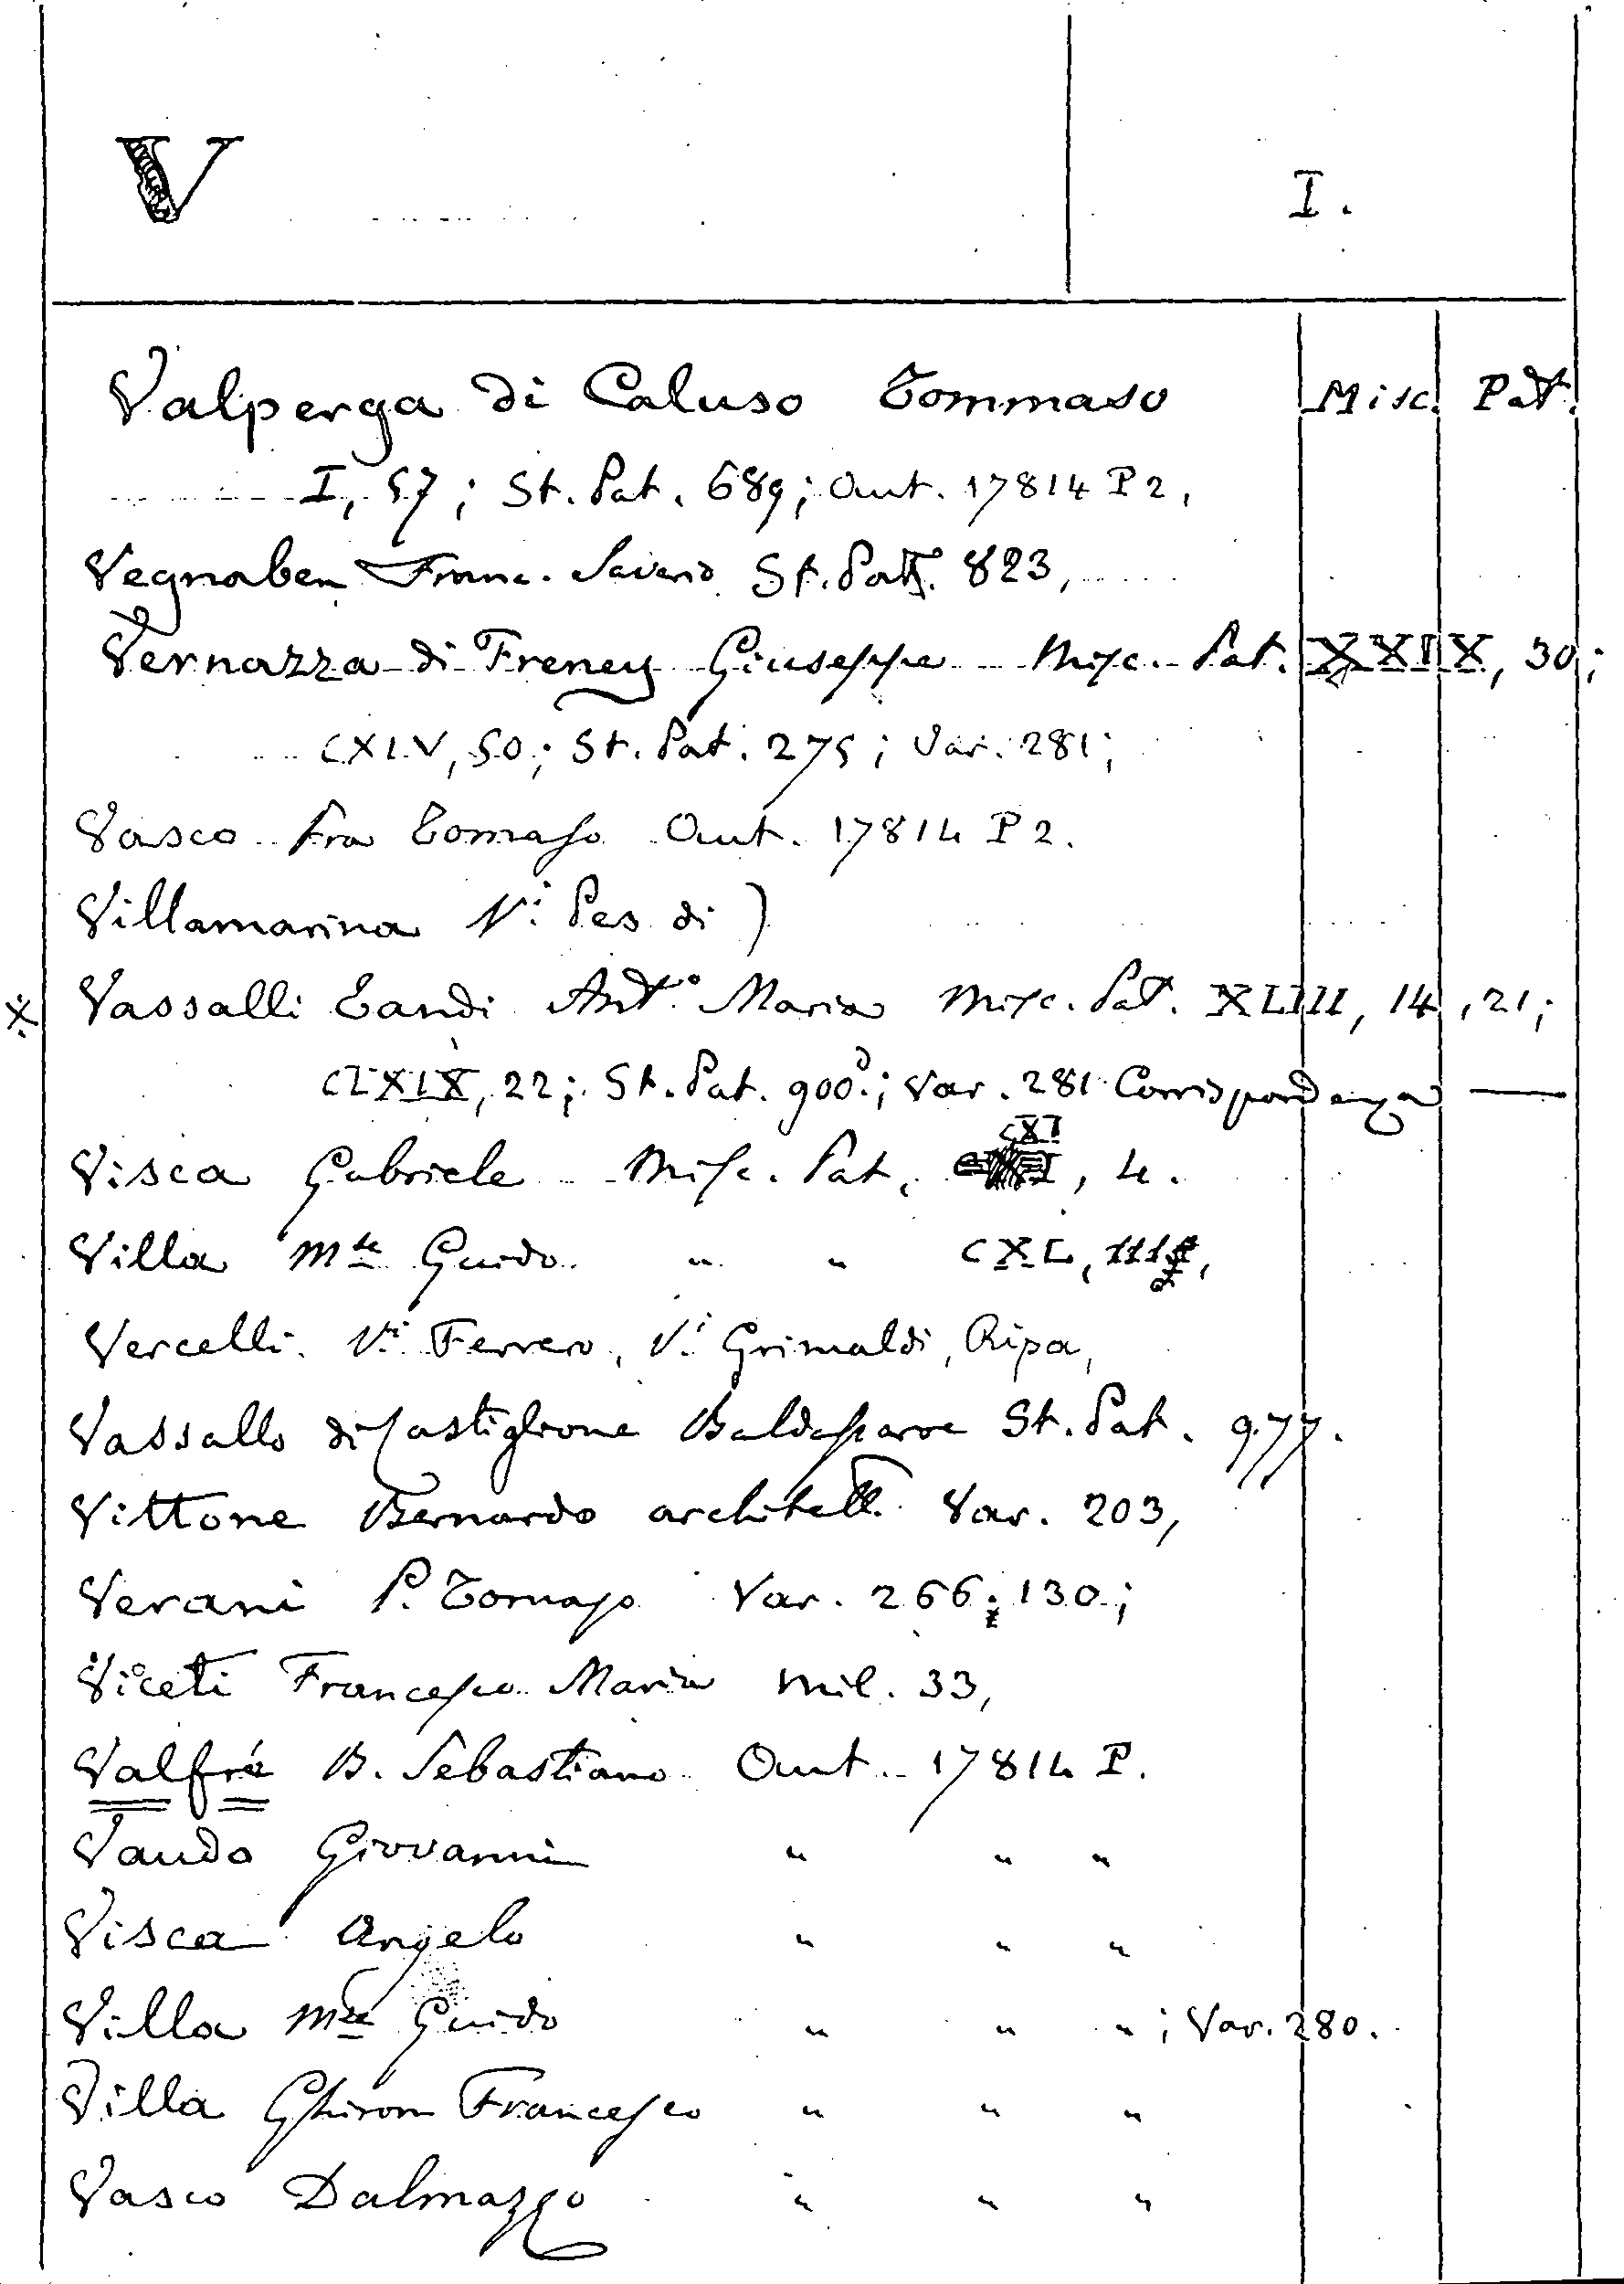 V
I.
Valperga di Caluso Tommaso Misc. Pat.
I, 57; St. Pat. 689; Aut. 17814 P 2,
Vegnaben Franc. Saverio St. Patr. 823,
Vernazza di Freney Giuseppe Misc. Pat. XXIX, 30;
CXLV, 50; St. Pat. 275; Var. 281;
Vasco Fra Tomaso Aut. 17814 P 2.
Villamarina Vi. Pes di )
Vassalli Eandi Anto. Maria Misc. Pat. XLIII, 14, 21;
CLXIX, 22; St. Pat. 900; Var. 281 Corrispondenza —
Visca Gabriele Misc. Pat. CXI, 4.
Villa Mse Guido " " CXL,
Vercelli. Vi. Ferrero, Vi. Grimaldi, Ripa,
Vassallo di Castiglione Baldassarre St. Pat. 977.
Vittone Bernardo architett. Var. 203,
Verani P. Tomaso Var. 266; 130;
Viceti Francesco Maria Mil. 33,
Valfré B. Sebastiano Aut. 17814 P.
Vaudo Giovanni " " "
Visca Angelo " " "
Villa Mse Guido " " "; Var. 280.
Villa Ghiron Francesco " " "
Vasco Dalmazzo " " "